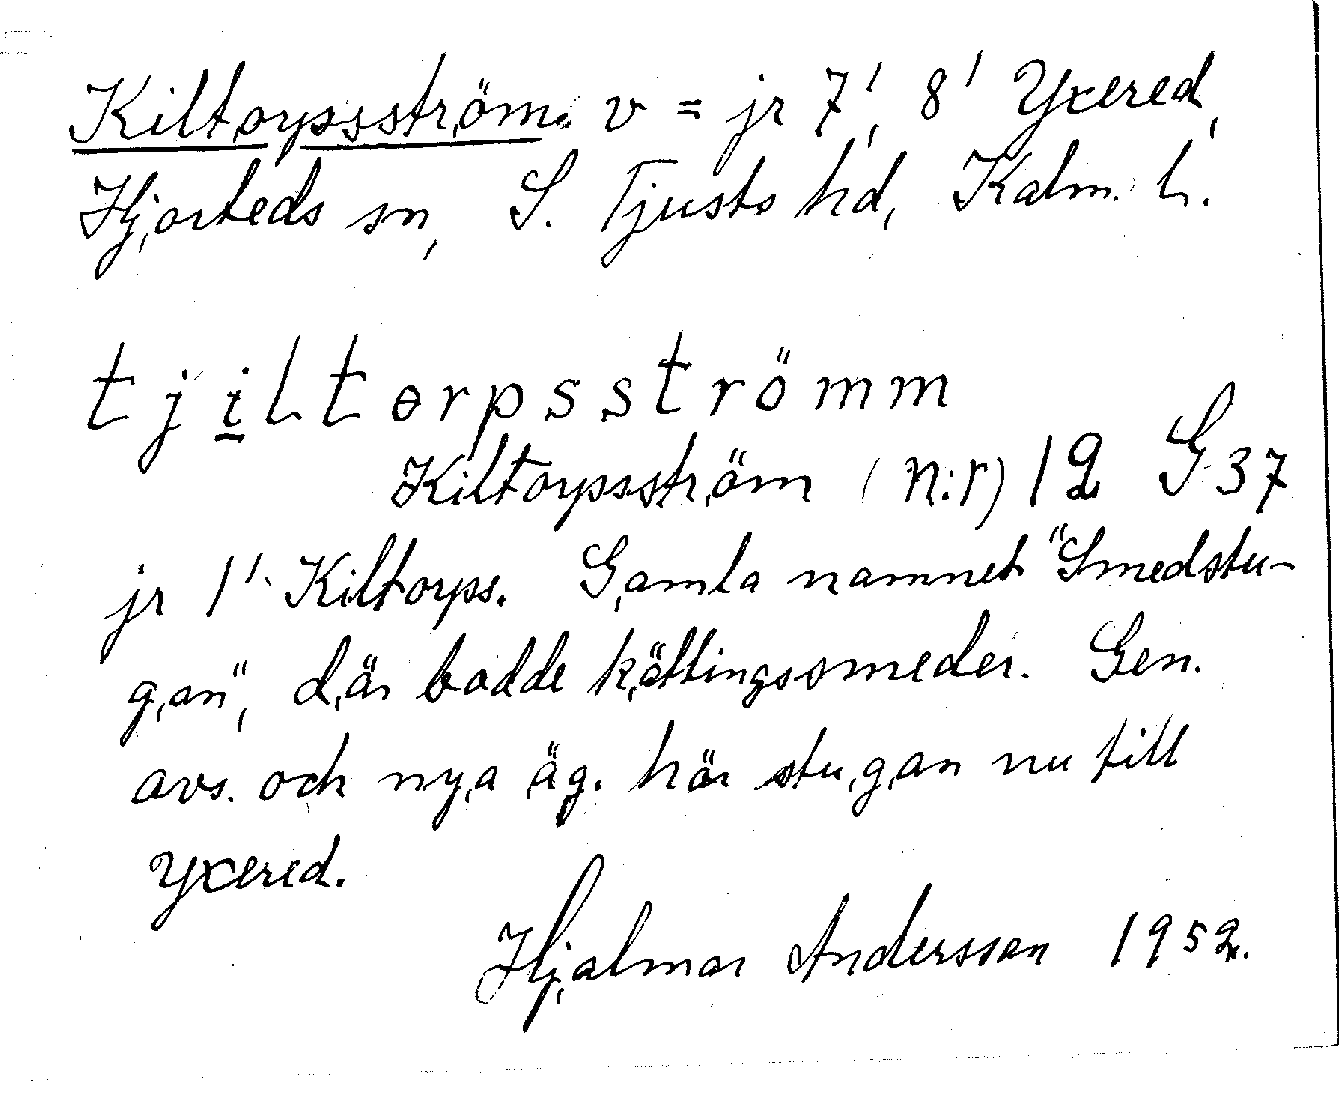 Kiltorpsström. v = jr 7', 8' Yxered,
Hjorteds sn, S. Tjusts hd, Kalm. l.
tjiltorpsströmm
Kiltorpsström (n:r) 12 G 37
jr 1' Kiltorps. Gamla namnet "Smedstu-
gan", där bodde kättingssmeder. Gen.
avs. och nya äg. hör stugan nu till
Yxered.
Hjalmar Andersson 1952.